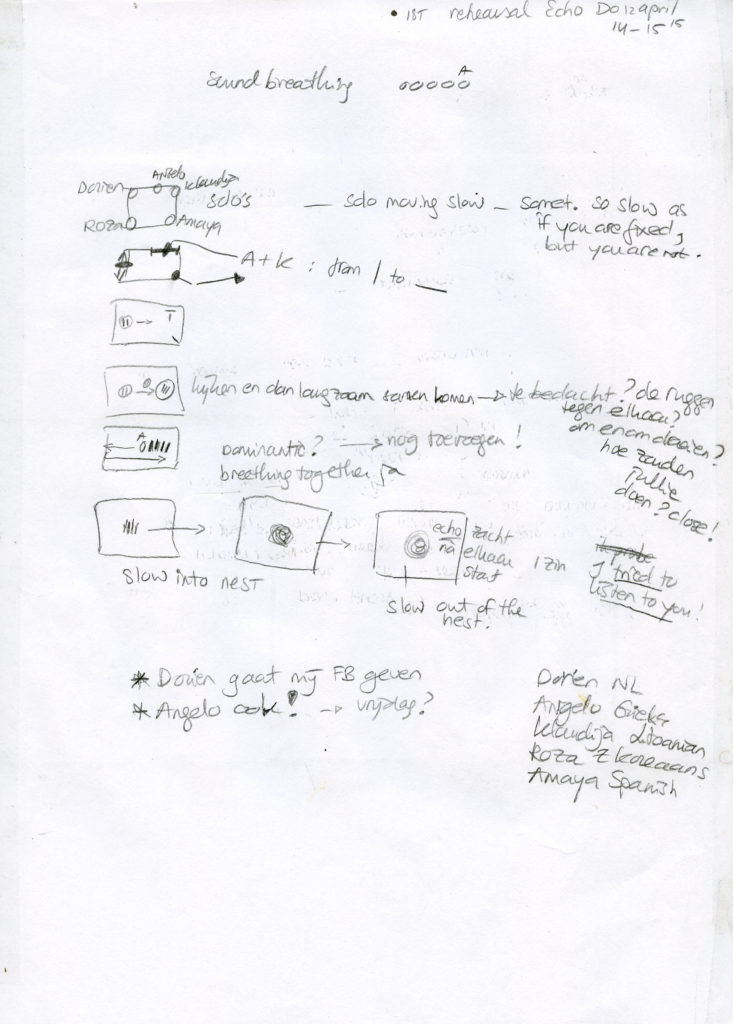 • 1ST rehearsal Echo Do 12 april
14-15 15
Sound breathing
A
Angelo
Dorien Klaudija
Roza Amaya
solo's — solo moving slow — somet. so slow as
if you are fixed,
but you are not.
A + K : from / to __
T
kijken en dan langzaam samen komen → te bedacht? de ruggen
tegen elkaar?
om en om draaien?
hoe zouden
jullie
doen? close!
A
Dominantie? → nog toevoegen!
breathing together
echo zacht
na elkaar 1 zin
start
I tried to
listen to you!
slow into nest
slow out of the
nest.
* Dorien gaat mij FB geven
* Angelo ook! → vrijdag?
Dorien NL
Angelo Grieks
Klaudija Litouanian
Roza Z Koreaans
Amaya Spanish